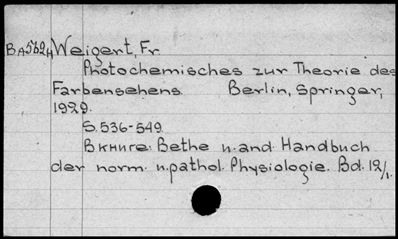 BA562H Weigert, Fr
Photochemisches zur Theorie des
Farbensehens Berlin, Springer,
1929.
S. 536-549.
В книге: Bethe u. and. Handbuch
der norm. u. pathol. Physiologie. Bd. 12/1.